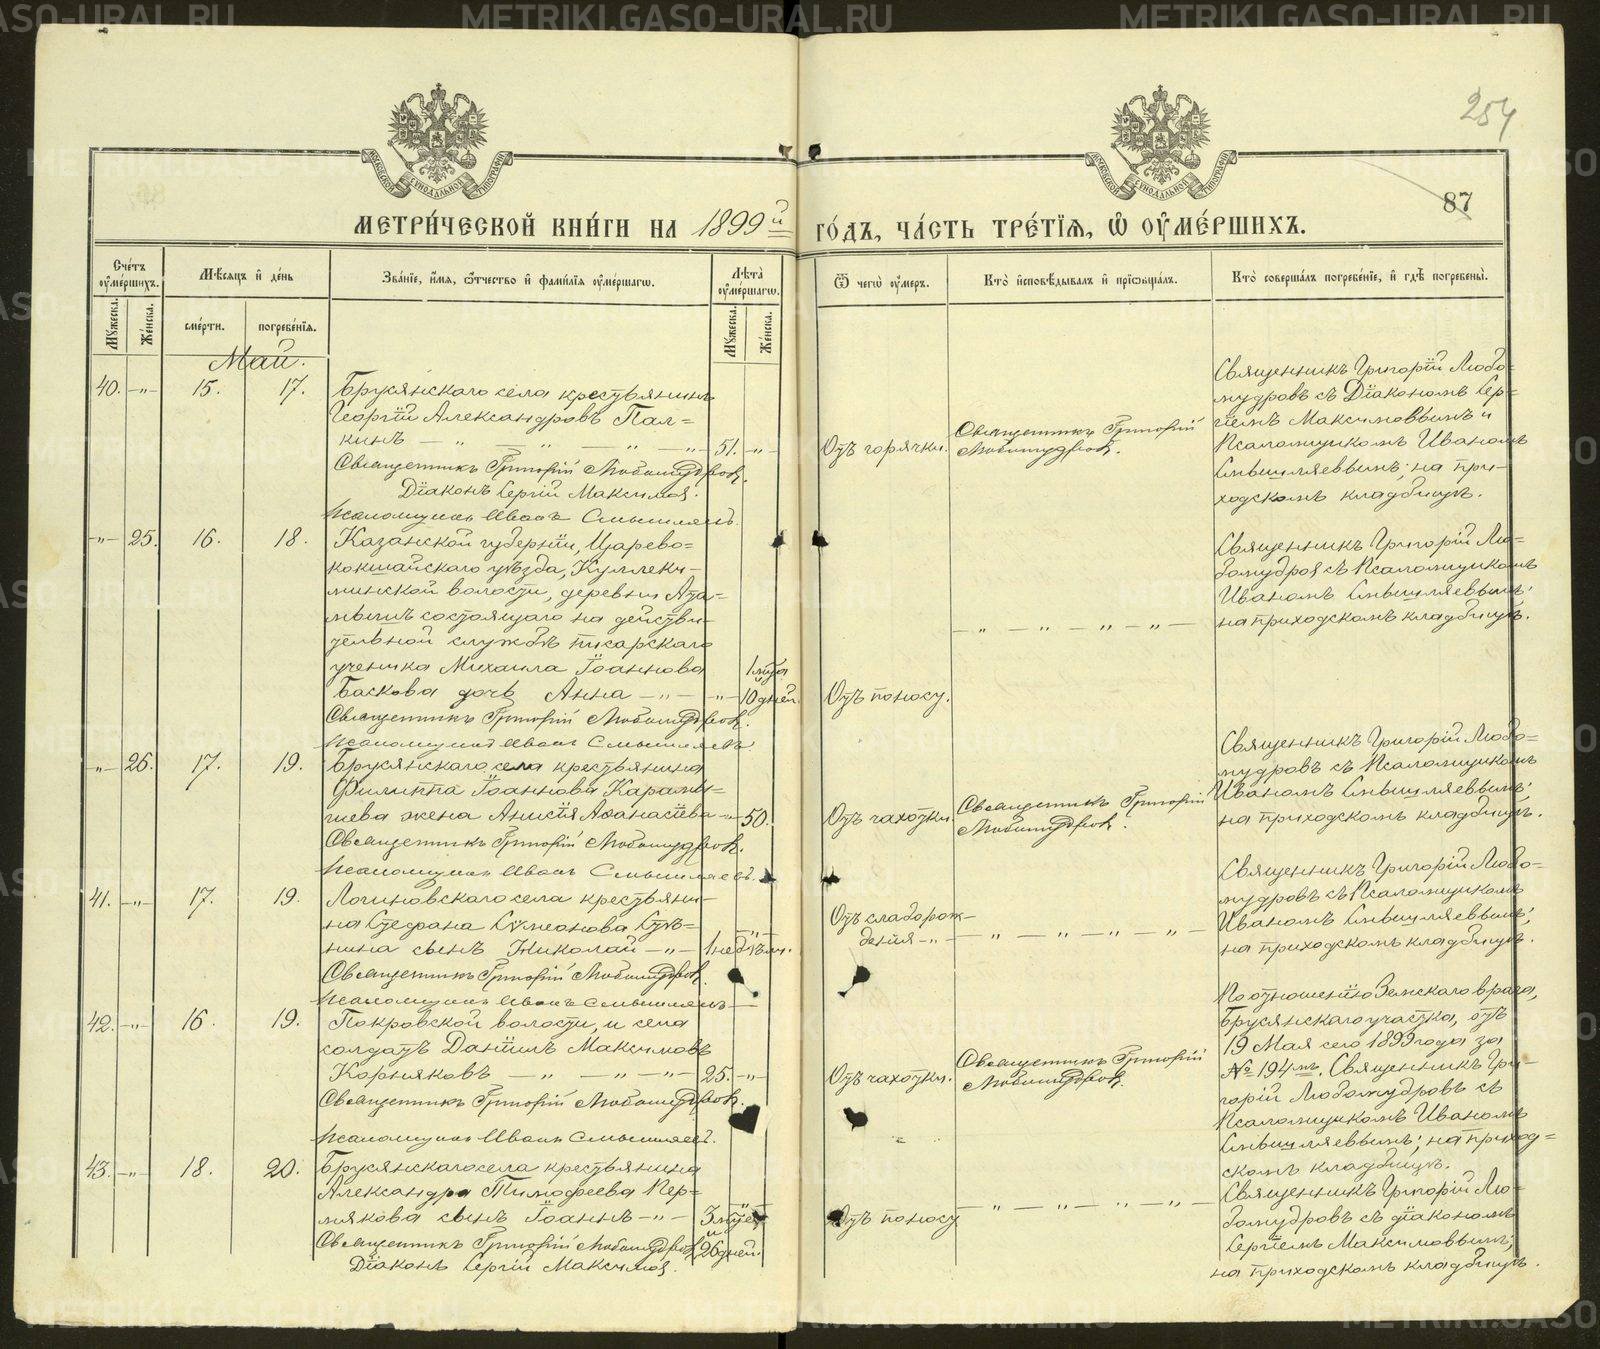 254
87
МЕТРИ́ЧЕСКОЙ КНИ́ГИ НА 1899 й ГО́ДЪ, ЧА́СТЬ ТРЕ́ТІЯ, Ѽ ОУ҆МЕ́РШИХЪ.
Сче́тъ оу҆ме́ршихъ.
Мꙋ́жеска.
Же́нска.
Мѣ́сяцъ и҆ де́нь
сме́рти.
погребе́нія.
Зва́ніе, и҆́мя, ѻ҆́тчество и҆ фами́лія оу҆ме́ршагѡ.
Лѣ́та оу҆ме́ршагѡ.
Мꙋ́жеска.
Же́нска.
Ѿ чегѡ̀ оу҆́меръ.
Кто̀ и҆сповѣ́дывалъ и҆ прїѡбща́лъ.
Кто̀ соверша́лъ погребе́ніе, и҆ гдѣ̀ погребены̀.
Май.
40. -„- 15. 17.
Брусянскаго села крестьянинъ
Георгій Александровъ Пал=
кинъ — „ — „ — „ — 51. -„-
Священникъ Григорій Любомудровъ.
Діаконъ Сергій Максимов.
Псаломщикъ Иванъ Смышляевъ.
Отъ горячки.
Священникъ Григорій
Любомудровъ.
Священникъ Григорій Любо=
мудровъ съ Діакономъ Сер=
гіемъ Максимовымъ и
Псаломщикомъ Иваномъ
Смышляевымъ; на при-
ходскомъ кладбищѣ.
-„- 25. 16. 18.
Казанской губерніи, Царево=
кокшайскаго уѣзда, Кулleки-
минской волости, деревни Ата=
състоящаго на действи-
тельной службѣ писарскаго
ученика Михаила Іоаннова
Баскова дочь Анна -„- -„- 1 мѣца 10 дней.
Священникъ Григорій Любомудровъ.
Псаломщикъ Иванъ Смышляевъ
Отъ поносу.
— „ — „ — „ — „ —
Священникъ Григорій Лю=
бомудров съ Псаломщикомъ
Иваномъ Смышляевымъ;
на приходскомъ кладбищѣ.
-„- 26. 17. 19.
Брусянскаго села крестьянина
Филиппа Іоаннова Карамы=
шева жена Анисія Аѳанасіева -„- 50.
Священникъ Григорій Любомудровъ.
Псаломщикъ Иванъ Смышляевъ.
Отъ чахотки.
Священникъ Григорій
Любомудровъ.
Священникъ Григорій Любо=
мудровъ съ Псаломщикомъ
Иваномъ Смышляевымъ;
на приходскомъ кладбищѣ.
41. -„- 17. 19.
Логиновскаго села крестьяни-
на Стефана Сѵмеонова
сынъ Николай -„- 1 недѣли. -„-
Священникъ Григорій Любомудров.
Псаломщикъ Иванъ Смышляевъ
Отъ слаборож-
денія -„-
— „ — „ — „ — „ —
Священникъ Григорій Любо=
мудровъ съ Псаломщикомъ
Иваномъ Смышляевымъ;
на приходскомъ кладбищѣ.
42. -„- 16. 19.
Покровской волости, и села
солдатъ Даніилъ Максимовъ
Корняковъ — „ — „ — „ — 25. -„-
Священникъ Григорій Любомудровъ.
Псаломщикъ Иванъ Смышляевъ.
Отъ чахотки.
Священникъ Григорій
Любомудровъ.
По отношенію Земскаго врача,
Брусянскаго участка, отъ
19 Мая сего 1899 года за
№ 194мъ. Священникъ Гри-
горій Любомудровъ съ
Псаломщикомъ Иваномъ
Смышляевымъ; на приход=
скомъ кладбищѣ.
43. -„- 18. 20.
Брусянскаго села крестьянина
Александра Тимофеева Пер=
мякова сынъ Іоаннъ -„- 3 мѣсц. и 26 дней. -„-
Священникъ Григорій Любомудровъ
Діаконъ Сергій Максимов.
Отъ поносу
— „ — „ — „ — „ —
Священникъ Григорій Лю-
бомудровъ съ діакономъ
Сергіемъ Максимовымъ;
на приходскомъ кладбищѣ.
METRIKI.GASO-URAL.RU